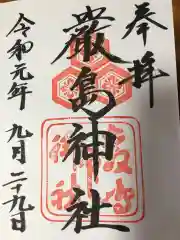 奉拝
厳島神社
令和元年九月二十九日